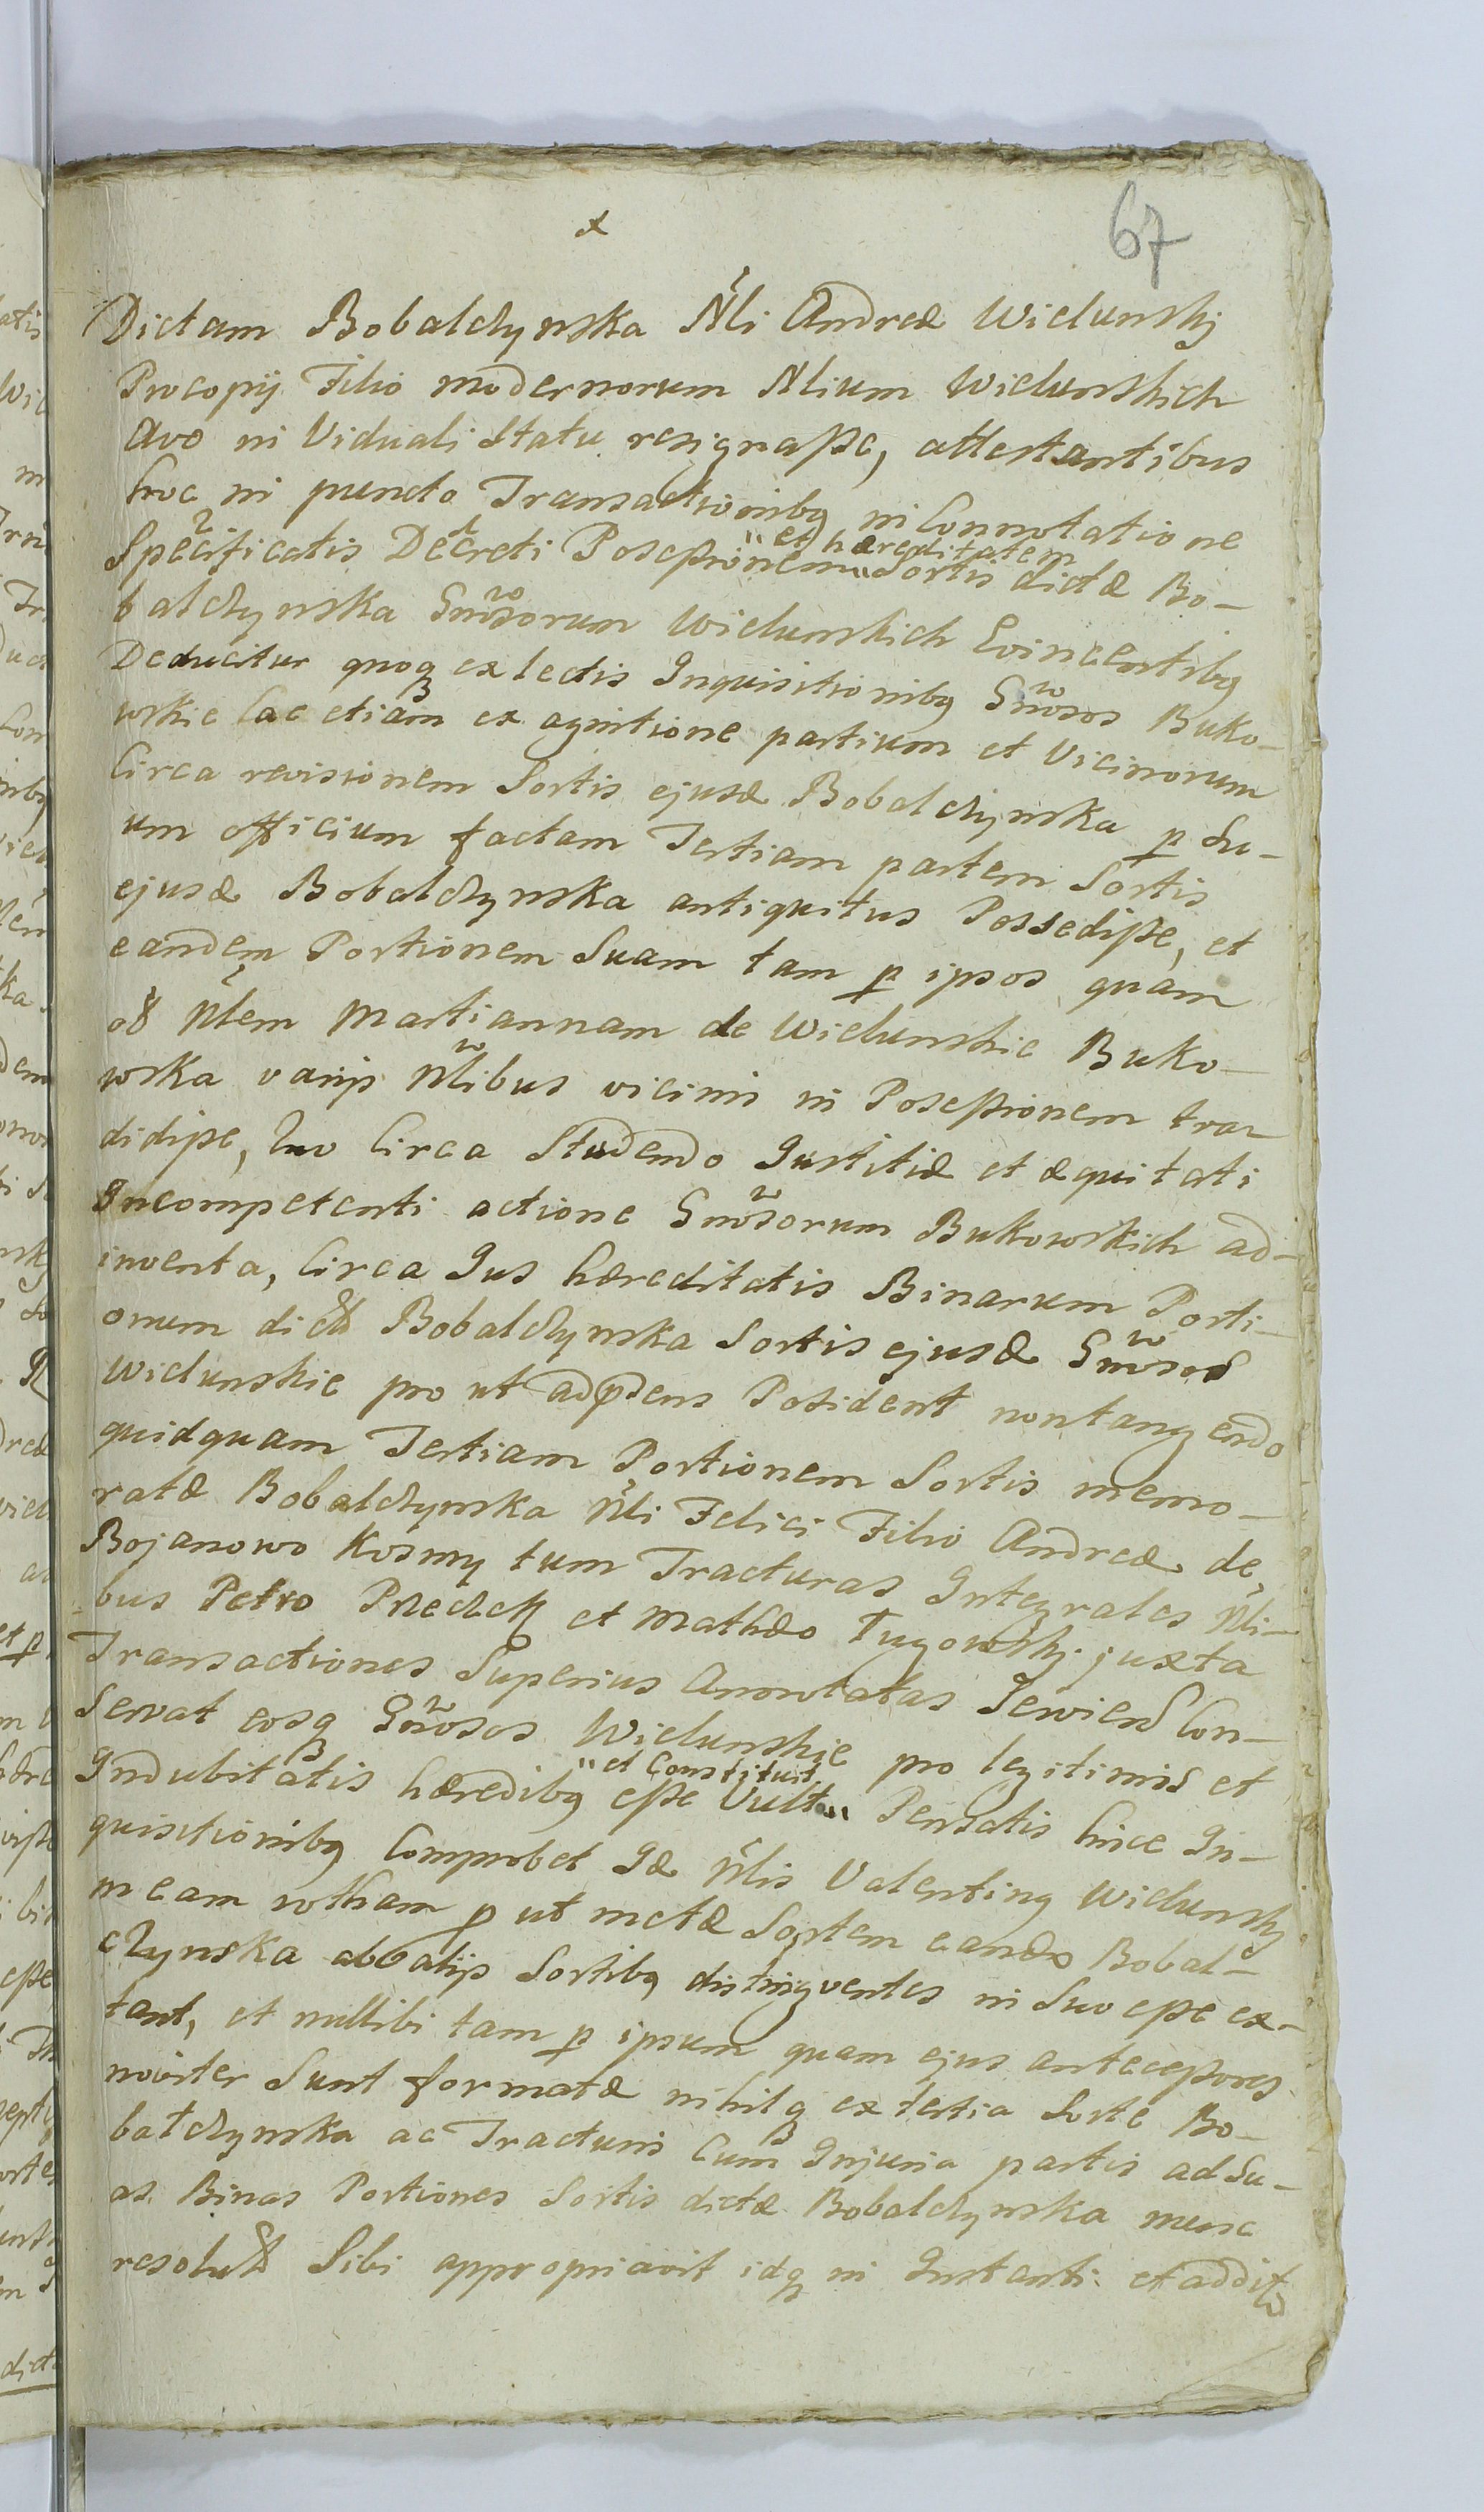 67
Dictam Bobalczynska Nli Andreæ Wielunsky
Procopij Filio modernorum Nlium Wielunskich
Avo in Viduali Statu resignasse, attestantibus
hoc in puncto Transactionibq in Connotatione
Specificatis Decreti Posessionem "et hæreditatem" Sortis dictæ Bo-
balczynska Gnosorum Wielunskich Evincentibq
Deducitur quoq ex lectis Inquisitionibq Gnosos Buko-
wskie (ac etiam ex agnitione partium et Vicinorum
Circa revisionem Sortis ejusd Bobalczynska p Su-
um officium factam Tertiam partem Sortis
ejusd Bobalczynska antiquitus Possedisse, et
eandem Portionem Suam tam p ipsos quam
ob Nlem Martiannam de Wielunskie Buko-
wska varijs Nlibus vicinis in Posessionem tra-
didisse, Quo Circa Studendo Justitiæ et æquitati
Incompetenti actione Gnosorum Bukowskich ad-
inventa, Circa Jus hæreditatis Binarum Porti-
onum dictæ Bobalczynska Sortis ejusd Gnosos
Wielunskie pro ut ad psens Posident non tangendo
quidquam Tertiam Portionem Sortis memo-
ratæ Bobalczynska Nli Felici Filio Andreæ de
Bojanowo Kosmy tum Tracturas Integrales Nli-
bus Petro et Mathæo Tugowsky juxta
Transactiones Superius Annotatas Servien Con-
servat eosq Gnosos Wielunskie pro legitimis et
Indubitatis hæredibq esse Vult "et Constituit" Pensatis hisce In-
quisitionibq Comprobet Id Nlis Valentinq Wielunsky
meam rotham p ut metæ Sortem eand Bobal-
czynska ab alijs Sortibq distingventes in Suo esse ex-
tant, et nullibi tam p ipsum quam ejus antecessores
noviter Sunt formatæ nihilq ex tertia Sorte Bo-
balczynska ac Tracturis Cum Injuria partis ad Su-
as Binas Portiones Sortis dictæ Bobalczynska
resolut Sibi appropriavit idq in Instanti et addit